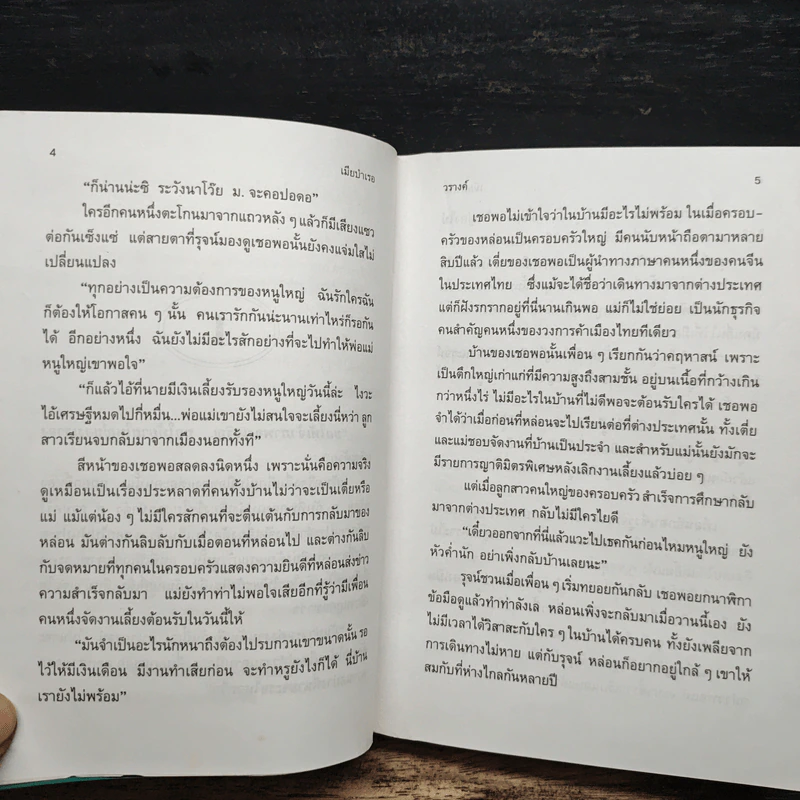 4
เมียบำเรอ
“ก็น่านน่ะซิ ระวังนาโว๊ย ม. จะคอปอดอ”
ใครอีกคนหนึ่งตะโกนมาจากแถวหลัง ๆ แล้วก็มีเสียงแซว
ต่อกันเซ็งแซ่ แต่สายตาที่รุจน์มองดูเชอพอนั้นยังคงแจ่มใสไม่
เปลี่ยนแปลง
“ทุกอย่างเป็นความต้องการของหนูใหญ่ ฉันรักใครฉัน
ก็ต้องให้โอกาสคน ๆ นั้น คนเรารักกันน่ะนานเท่าไหร่ก็รอกัน
ได้ อีกอย่างหนึ่ง ฉันยังไม่มีอะไรสักอย่างที่จะไปทำให้พ่อแม่
หนูใหญ่เขาพอใจ”
“ก็แล้วไอ้ที่นายมีเงินเลี้ยงรับรองหนูใหญ่วันนี้ล่ะ ไงวะ
ไอ้เศรษฐีหมดไปกี่หมื่น...พ่อแม่เขายังไม่สนใจจะเลี้ยงนี่หว่า ลูก
สาวเรียนจบกลับมาจากเมืองนอกทั้งที”
สีหน้าของเชอพอสลดลงนิดหนึ่ง เพราะนั่นคือความจริง
ดูเหมือนเป็นเรื่องประหลาดที่คนทั้งบ้านไม่ว่าจะเป็นเตี่ยหรือ
แม่ แม้แต่น้อง ๆ ไม่มีใครสักคนที่จะตื่นเต้นกับการกลับมาของ
หล่อน มันต่างกันลิบลับกับเมื่อตอนที่หล่อนไป และต่างกันลิบ
กับจดหมายที่ทุกคนในครอบครัวแสดงความยินดีที่หล่อนส่งข่าว
ความสำเร็จกลับมา แม่ยังทำท่าไม่พอใจเสียอีกที่รู้ว่ามีเพื่อน
คนหนึ่งจัดงานเลี้ยงต้อนรับในวันนี้ให้
“มันจำเป็นอะไรนักหนาถึงต้องไปรบกวนเขาขนาดนั้น รอ
ไว้ให้มีเงินเดือน มีงานทำเสียก่อน จะทำหรูยังไงก็ได้ นี่บ้าน
เรายังไม่พร้อม”
วรางค์
5
เชอพอไม่เข้าใจว่าในบ้านมีอะไรไม่พร้อม ในเมื่อครอบ-
ครัวของหล่อนเป็นครอบครัวใหญ่ มีคนนับหน้าถือตามาหลาย
สิบปีแล้ว เตี่ยของเชอพอเป็นผู้นำทางภาษาคนหนึ่งของคนจีน
ในประเทศไทย ซึ่งแม้จะได้ชื่อว่าเดินทางมาจากต่างประเทศ
แต่ก็ฝังรกรากอยู่ที่นี่นานเกินพอ แม่ก็ไม่ใช่ย่อย เป็นนักธุรกิจ
คนสำคัญคนหนึ่งของวงการค้าเมืองไทยทีเดียว
บ้านของเชอพอนั้นเพื่อน ๆ เรียกกันว่าคฤหาสน์ เพราะ
เป็นตึกใหญ่เก่าแก่ที่มีความสูงถึงสามชั้น อยู่บนเนื้อที่กว้างเกิน
กว่าหนึ่งไร่ ไม่มีอะไรในบ้านที่ไม่ดีพอจะต้อนรับใครได้ เชอพอ
จำได้ว่าเมื่อก่อนที่หล่อนจะไปเรียนต่อที่ต่างประเทศนั้น ทั้งเตี่ย
และแม่ชอบจัดงานที่บ้านเป็นประจำ และสำหรับแม่นั้นยังมักจะ
มีรายการญาติมิตรพิเศษหลังเลิกงานเลี้ยงแล้วบ่อย ๆ
แต่เมื่อลูกสาวคนใหญ่ของครอบครัว สำเร็จการศึกษากลับ
มาจากต่างประเทศ กลับไม่มีใครไยดี
“เดี๋ยวออกจากที่นี่แล้วแวะไปเธคกันก่อนไหมหนูใหญ่ ยัง
หัวค่ำนัก อย่าเพิ่งกลับบ้านเลยนะ”
รุจน์ชวนเมื่อเพื่อน ๆ เริ่มทยอยกันกลับ เชอพอยกนาฬิกา
ข้อมือดูแล้วทำท่าลังเล หล่อนเพิ่งจะกลับมาเมื่อวานนี้เอง ยัง
ไม่มีเวลาได้วิสาสะกับใคร ๆ ในบ้านได้ครบคน ทั้งยังเพลียจาก
การเดินทางไม่หาย แต่กับรุจน์ หล่อนก็อยากอยู่ใกล้ ๆ เขาให้
สมกับที่ห่างไกลกันหลายปี